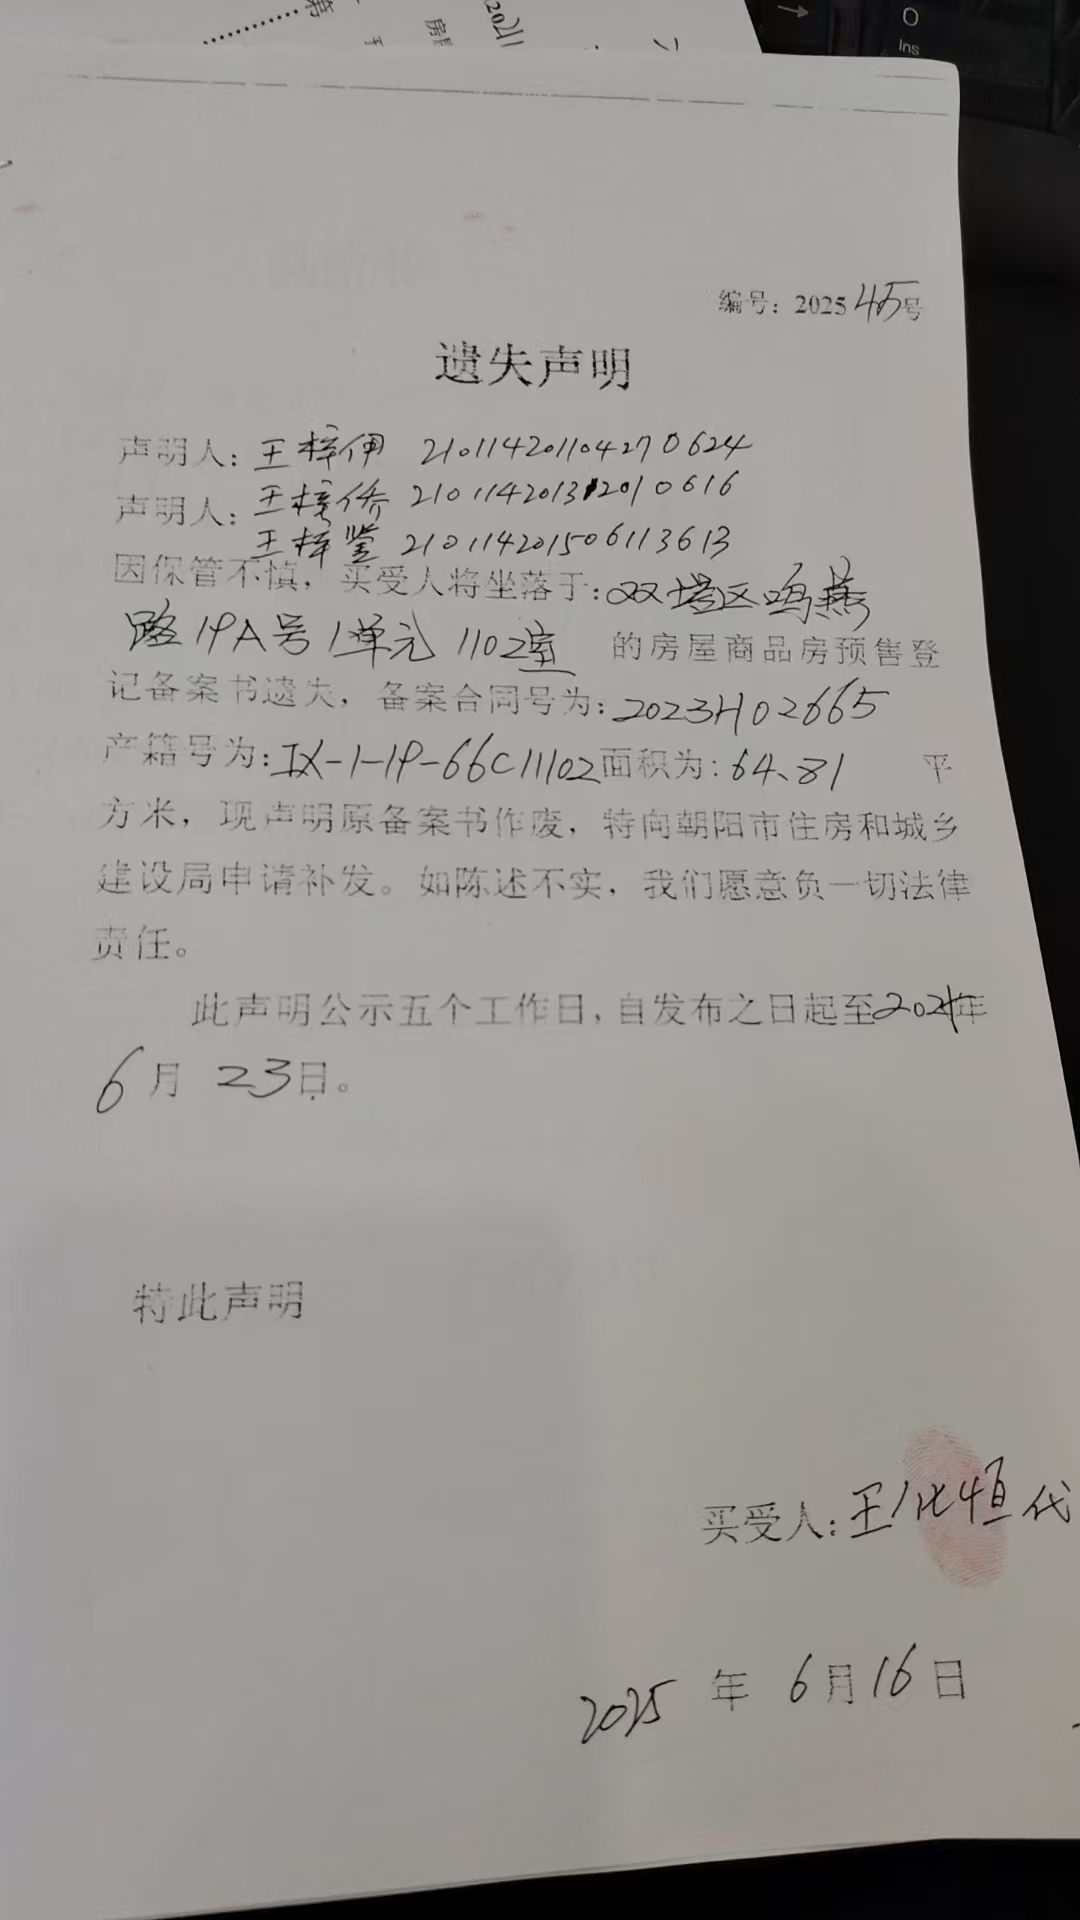 编号：2025 45号
遗失声明
声明人：王梓伊 210114201104270624
声明人：王梓侨 210114201312010616
王梓鉴 210114201506113613
因保管不慎，买受人将坐落于：双塔区鸣燕
路19A号1单元1102室 的房屋商品房预售登
记备案书遗失，备案合同号为：2023H02665
产籍号为：IX-1-19-66C11102面积为：64.81 平
方米，现声明原备案书作废，特向朝阳市住房和城乡
建设局申请补发。如陈述不实，我们愿意负一切法律
责任。
此声明公示五个工作日，自发布之日起至2025年
6月 23日。
特此声明
买受人：王化恒代
2025 年 6月16日
Ins